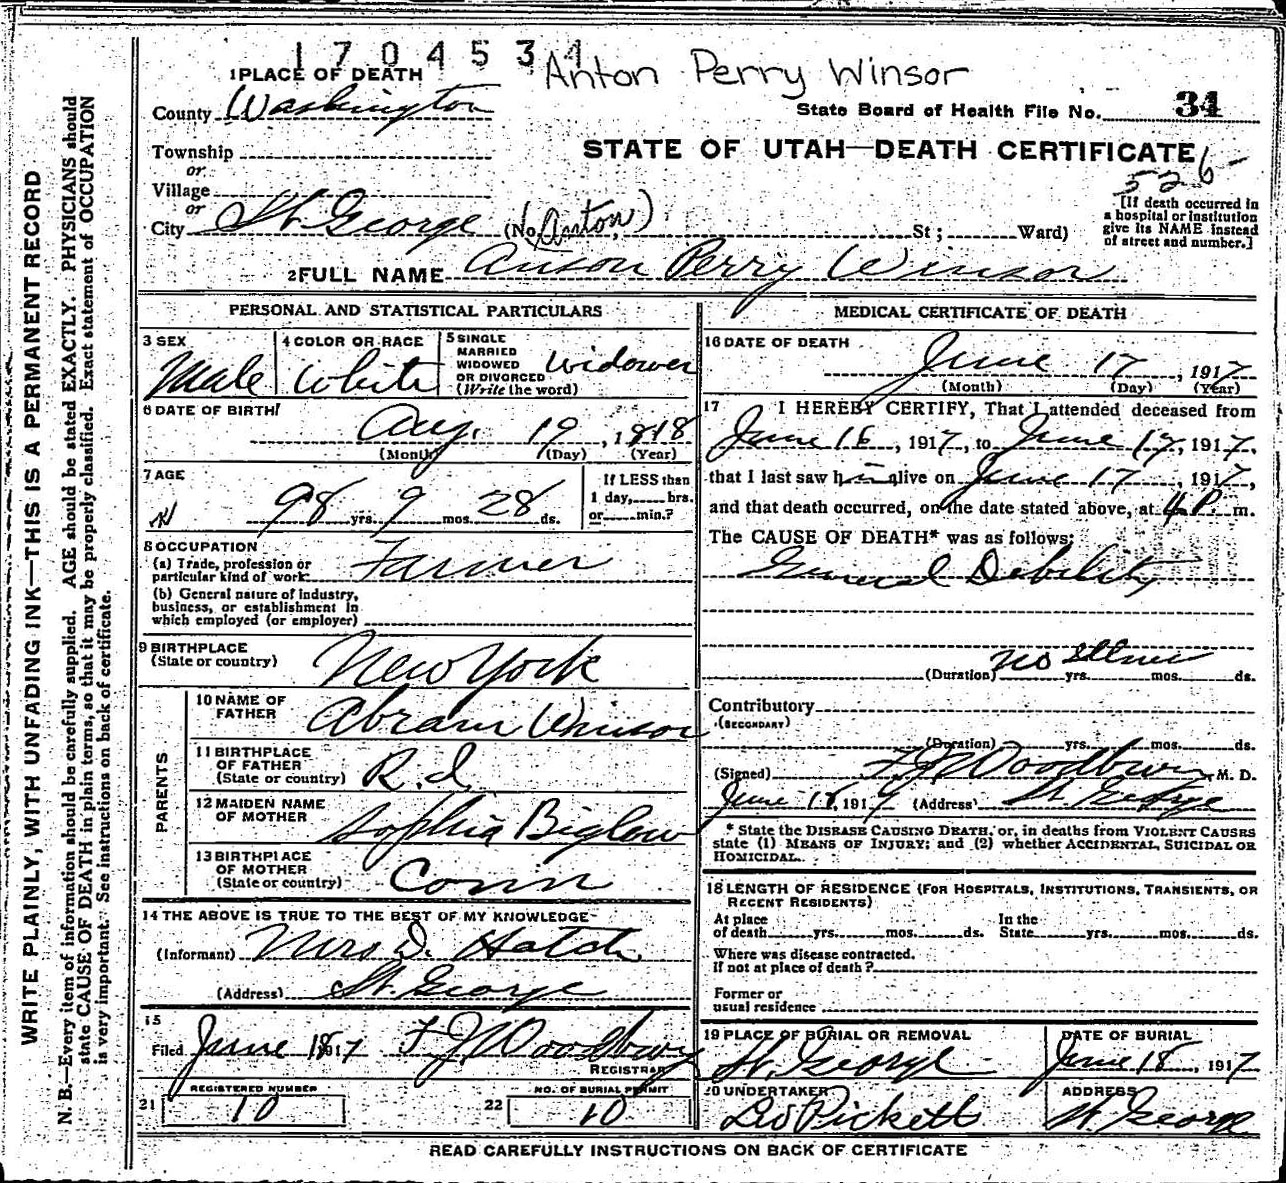 1704534
Anton Perry Winsor
1 PLACE OF DEATH
County Washington
State Board of Health File No. 34
Township
or
Village
or
STATE OF UTAH—DEATH CERTIFICATE
526
City St. George (No. (Anton) St; Ward)
[If death occurred in
a hospital or institution
give its NAME instead
of street and number.]
2 FULL NAME Anson Perry Winsor
PERSONAL AND STATISTICAL PARTICULARS
3 SEX
Male
4 COLOR OR RACE
White
5 SINGLE
MARRIED
WIDOWED
OR DIVORCED
(Write the word)
Widower
6 DATE OF BIRTH
Aug. 19, 1818
(Month) (Day) (Year)
7 AGE
98 yrs. 9 mos. 28 ds.
If LESS than
1 day, hrs.
or min.?
8 OCCUPATION
(a) Trade, profession or
particular kind of work
Farmer
(b) General nature of industry,
business, or establishment in
which employed (or employer)
9 BIRTHPLACE
(State or country)
New York
PARENTS
10 NAME OF
FATHER
Abram Winsor
11 BIRTHPLACE
OF FATHER
(State or country)
R.I.
12 MAIDEN NAME
OF MOTHER
Sophia Biglow
13 BIRTHPLACE
OF MOTHER
(State or country)
Conn
14 THE ABOVE IS TRUE TO THE BEST OF MY KNOWLEDGE
(Informant) Mrs D. Hatch
(Address) St. George
15
Filed June 18 1917 F J Woodbury
REGISTRAR
REGISTERED NUMBER
21 10
NO. OF BURIAL PERMIT
22 10
MEDICAL CERTIFICATE OF DEATH
16 DATE OF DEATH
June 17, 1917
(Month) (Day) (Year)
17 I HEREBY CERTIFY, That I attended deceased from
June 16, 1917, to June 17, 1917,
that I last saw him alive on June 17, 1917,
and that death occurred, on the date stated above, at 4 P. m.
The CAUSE OF DEATH* was as follows:
General Debility
no illness
(Duration) yrs. mos. ds.
Contributory
(SECONDARY)
(Duration) yrs. mos. ds.
(Signed) F J Woodbury, M. D.
June 18, 1917 (Address) St. George
* State the DISEASE CAUSING DEATH, or, in deaths from VIOLENT CAUSES
state (1) MEANS OF INJURY; and (2) whether ACCIDENTAL, SUICIDAL OR
HOMICIDAL.
18 LENGTH OF RESIDENCE (FOR HOSPITALS, INSTITUTIONS, TRANSIENTS, OR
RECENT RESIDENTS)
At place
of death yrs. mos. ds.
In the
State yrs. mos. ds.
Where was disease contracted.
If not at place of death?
Former or
usual residence
19 PLACE OF BURIAL OR REMOVAL
St. George
DATE OF BURIAL
June 18, 1917
20 UNDERTAKER
Pickett
ADDRESS
St. George
READ CAREFULLY INSTRUCTIONS ON BACK OF CERTIFICATE
WRITE PLAINLY, WITH UNFADING INK—THIS IS A PERMANENT RECORD
N. B.—Every item of information should be carefully supplied. AGE should be stated EXACTLY. PHYSICIANS should
state CAUSE OF DEATH in plain terms, so that it may be properly classified. Exact statement of OCCUPATION
is very important. See instructions on back of certificate.